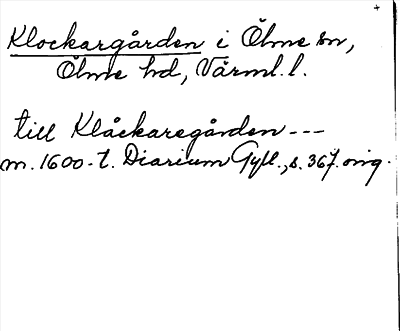 Klockargården i Ölme sn,
Ölme hd, Värml. l.
till Klåckaregården ---
m. 1600-t. Diarium Gyll., s. 367. orig.